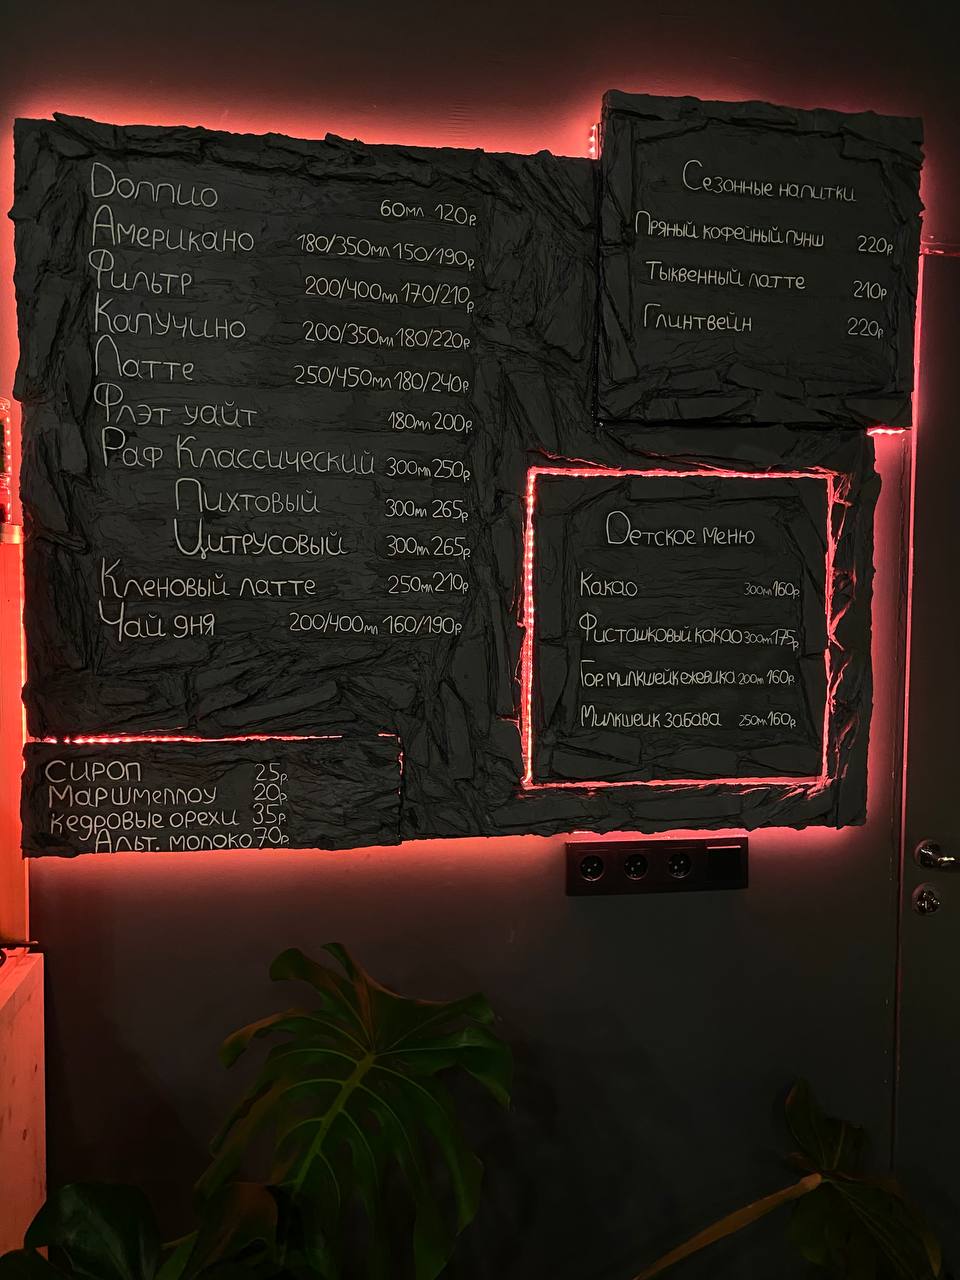 Доппио 60мл 120р.
Американо 180/350мл 150/190р.
Фильтр 200/400мл 170/210р.
Капучино 200/350мл 180/220р.
Латте 250/450мл 180/240р.
Флэт уайт 180мл 200р.
Раф Классический 300мл 250р.
Пихтовый 300мл 265р.
Цитрусовый 300мл 265р.
Кленовый латте 250мл 210р.
Чай дня 200/400мл 160/190р.
сироп 25р.
Маршмеллоу 20р.
кедровые орехи 35р.
Альт. молоко 70р.
Сезонные напитки
Пряный кофейный пунш 220р.
Тыквенный латте 210р
Глинтвейн 220р.
Детское меню
Какао 300мл 160р.
Фисташковый какао 300мл 175р.
Гор. милкшейк ежевика 200мл 160р.
Милкшеик забава 250мл 160р.